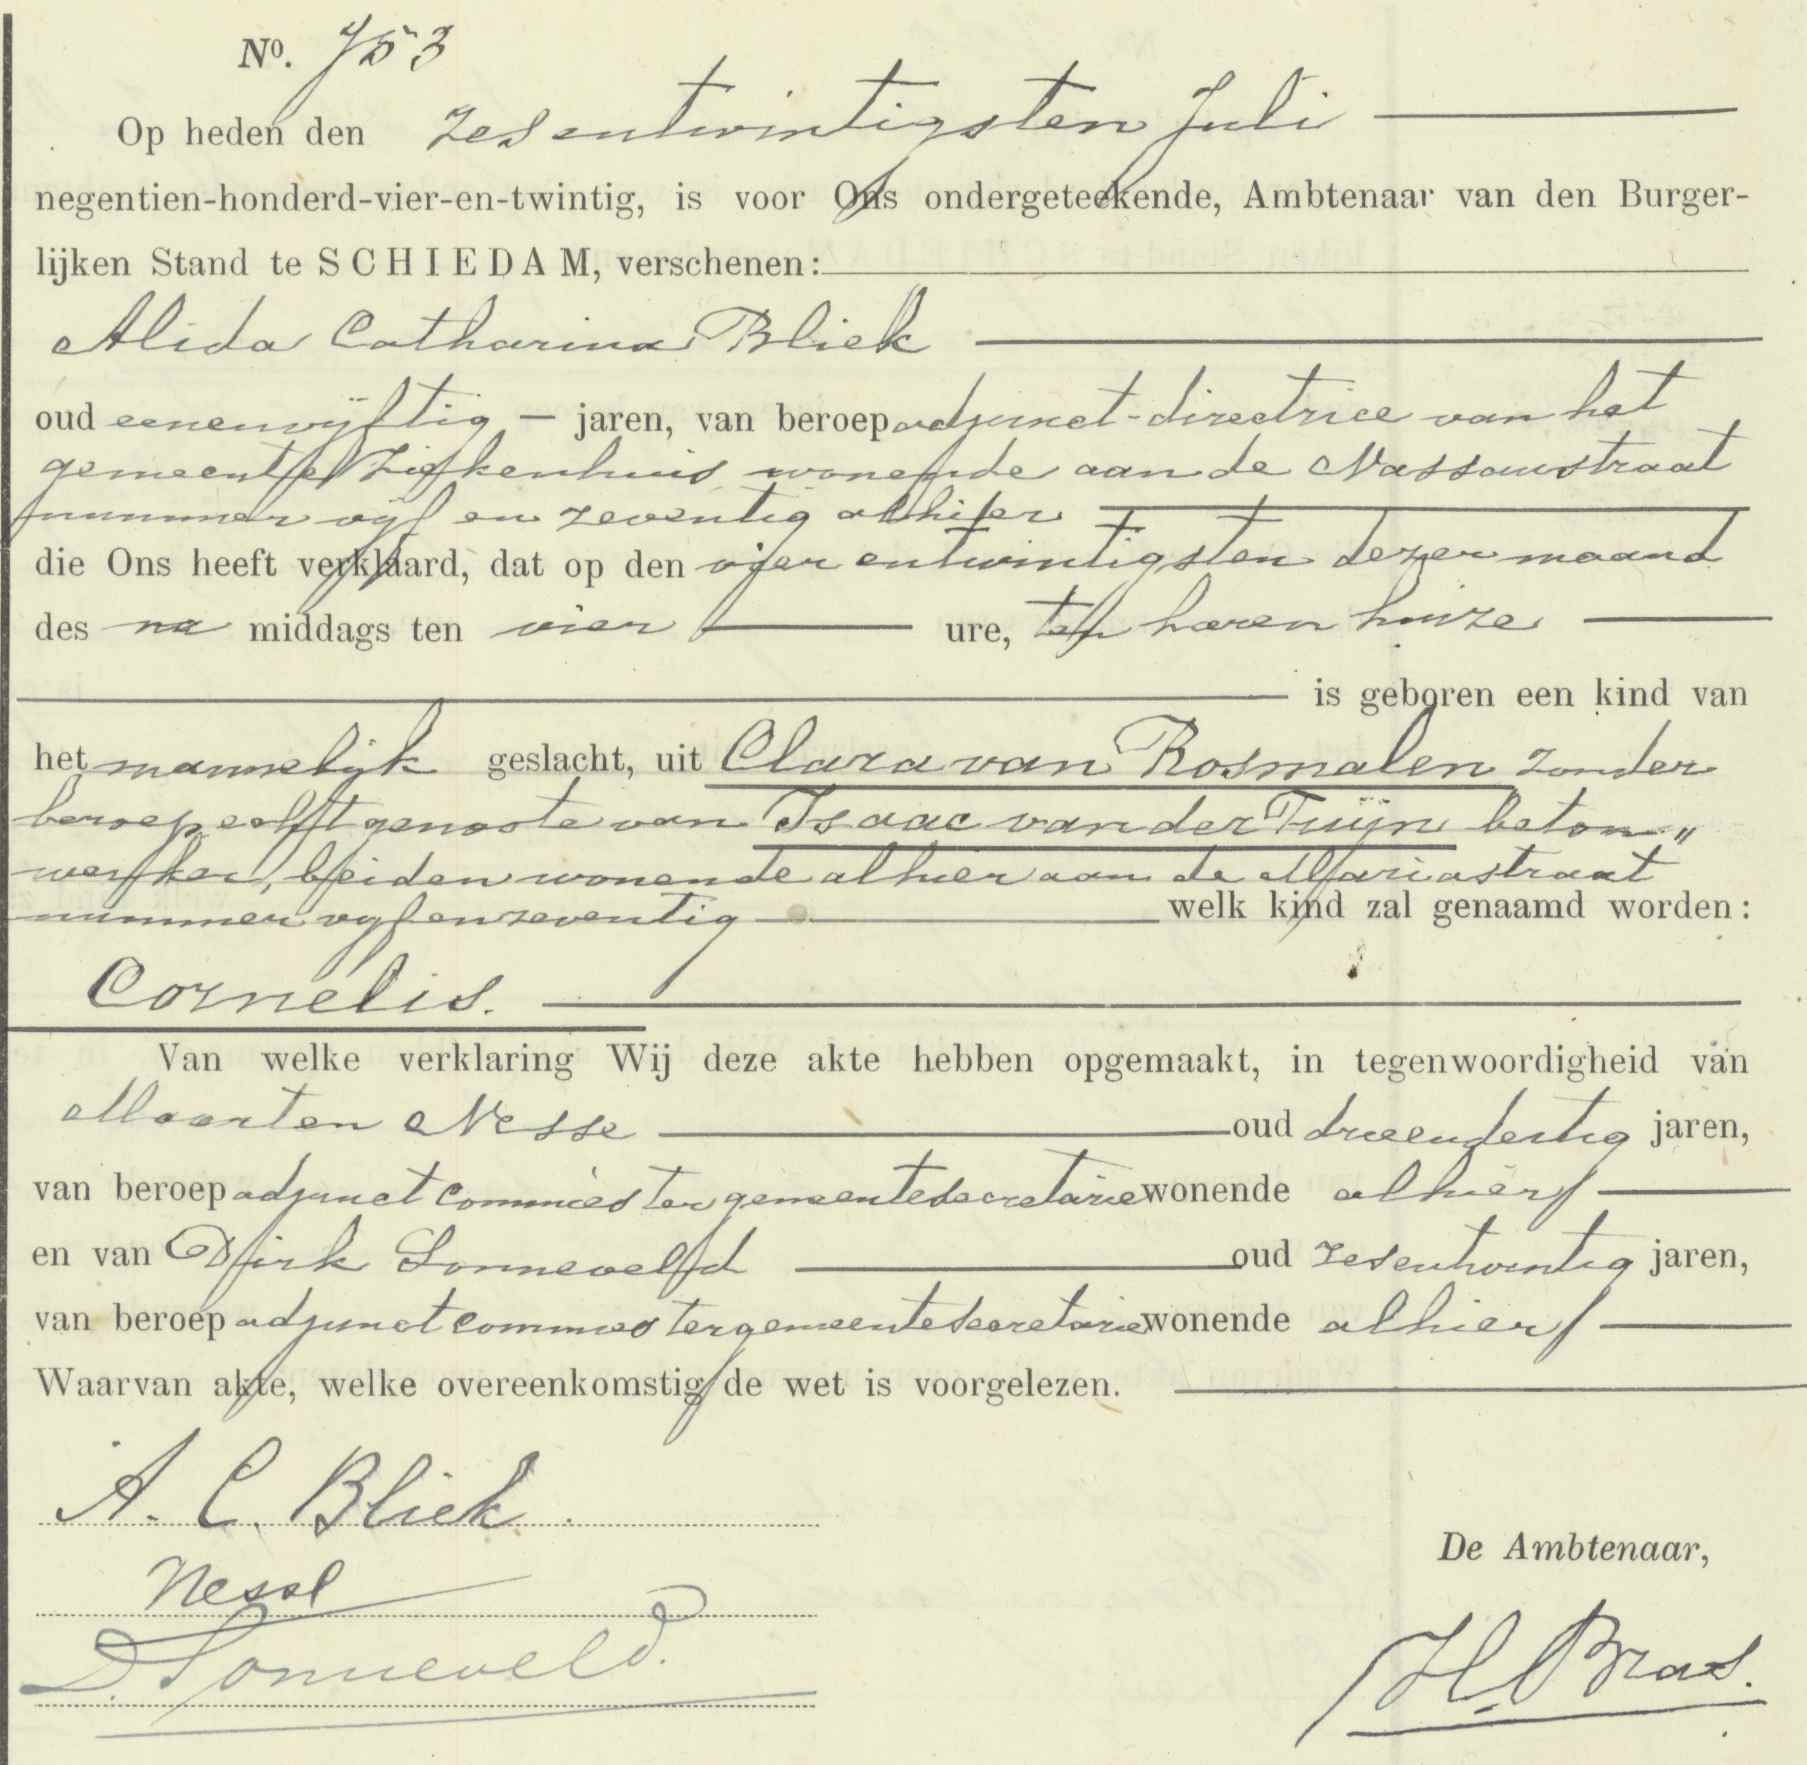 Nº. 753
Op heden den zesentwintigsten Juli
negentien-honderd-vier-en-twintig, is voor Ons ondergeteekende, Ambtenaar van den Burger-
lijken Stand te SCHIEDAM, verschenen:
Alida Catharina Bliek
oud eenenvijftig jaren, van beroep adjunct-directrice van het
gemeente Ziekenhuis wonende aan de Nassaustraat
nummer vijf en zeventig alhier
die Ons heeft verklaard, dat op den vier entwintigsten dezer maand
des na middags ten vier ure, ten haren huize
is geboren een kind van
het mannelijk geslacht, uit Clara van Rosmalen zonder
beroep echtgenoote van Isaac van der Tuijn beton„
werker, beiden wonende alhier aan de Mariastraat
nummer vijfenzeventig welk kind zal genaamd worden:
Cornelis.
Van welke verklaring Wij deze akte hebben opgemaakt, in tegenwoordigheid van
Maarten Nesse oud drieendertig jaren,
van beroep adjunct commies ter gemeentesecretarie wonende alhier
en van Dirk Sonneveld oud zesentwintig jaren,
van beroep adjunct commies ter gemeentesecretarie wonende alhier
Waarvan akte, welke overeenkomstig de wet is voorgelezen.
A. C. Bliek
De Ambtenaar,
Nesse
D. Sonneveld.
H. Bras.